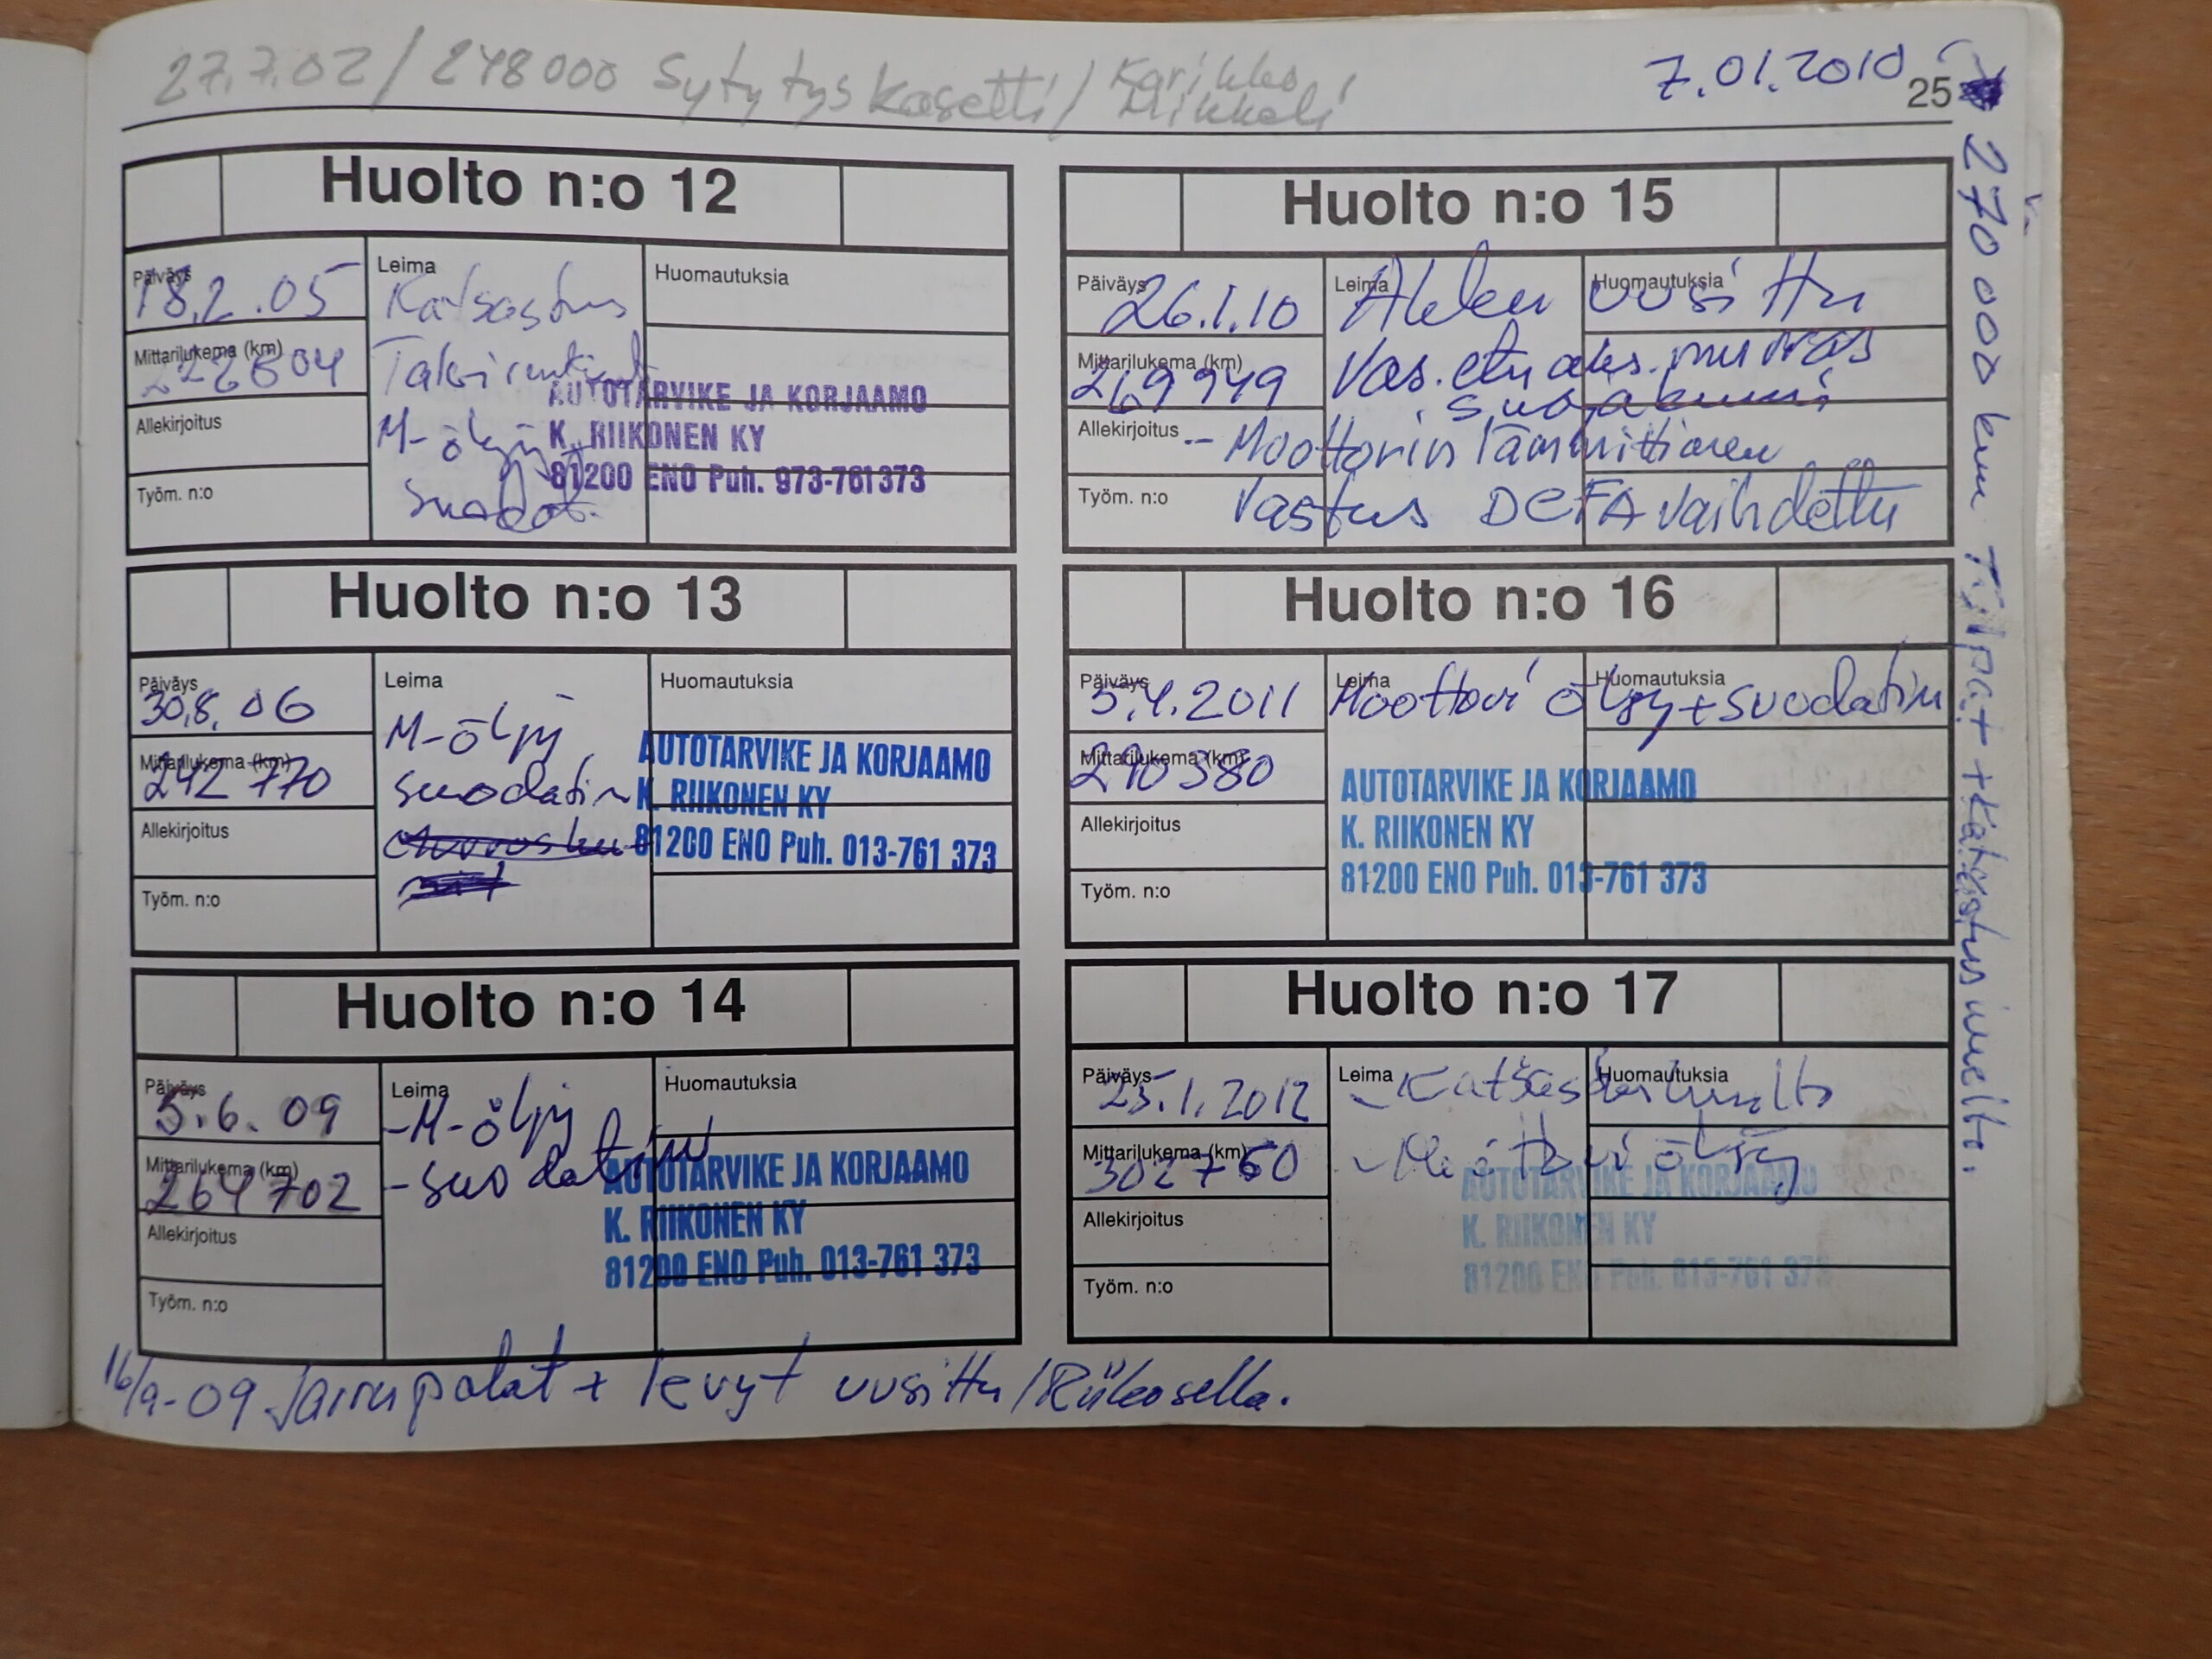 27.7.02/248000 Sytytyskasetti/Karikko
Mikkeli
7.01.2010
25
Huolto n:o 12
Päiväys
18.2.05
Mittarilukema (km)
Allekirjoitus
Työm. n:o
Leima
Katsastus
M-öljy
suodat.
Huomautuksia
AUTOTARVIKE JA KORJAAMO
K. RIIKONEN KY
81200 ENO Puh. 973-761373
Huolto n:o 13
Päiväys
30.8.06
Mittarilukema (km)
242 770
Allekirjoitus
Työm. n:o
Leima
M-öljy
suodatin
Huomautuksia
AUTOTARVIKE JA KORJAAMO
K. RIIKONEN KY
81200 ENO Puh. 013-761 373
Huolto n:o 14
Päiväys
5.6.09
Mittarilukema (km)
264702
Allekirjoitus
Työm. n:o
Leima
-M-öljy
-suodatin
Huomautuksia
AUTOTARVIKE JA KORJAAMO
K. RIIKONEN KY
81200 ENO Puh. 013-761 373
16/9-09 Jarrupalat + levyt uusittu/Riikosella.
Huolto n:o 15
Päiväys
26.1.10
Mittarilukema (km)
269949
Allekirjoitus
Työm. n:o
Leima
Huomautuksia
Akku uusittu
Vas. etu aks. murros
suojakumi
- Moottorin lämmittimen
Vastus DEFA vaihdettu
Huolto n:o 16
Päiväys
5.4.2011
Mittarilukema (km)
290380
Allekirjoitus
Työm. n:o
Leima
Huomautuksia
Moottori öljy + suodatin
AUTOTARVIKE JA KORJAAMO
K. RIIKONEN KY
81200 ENO Puh. 013-761 373
Huolto n:o 17
Päiväys
25.1.2012
Mittarilukema (km)
302760
Allekirjoitus
Työm. n:o
Leima
Huomautuksia
- Katsastushuolto
- Moottori öljy
AUTOTARVIKE JA KORJAAMO
K. RIIKONEN KY
81200 ENO Puh. 013-761 373
270000 km + katsastushuolto.